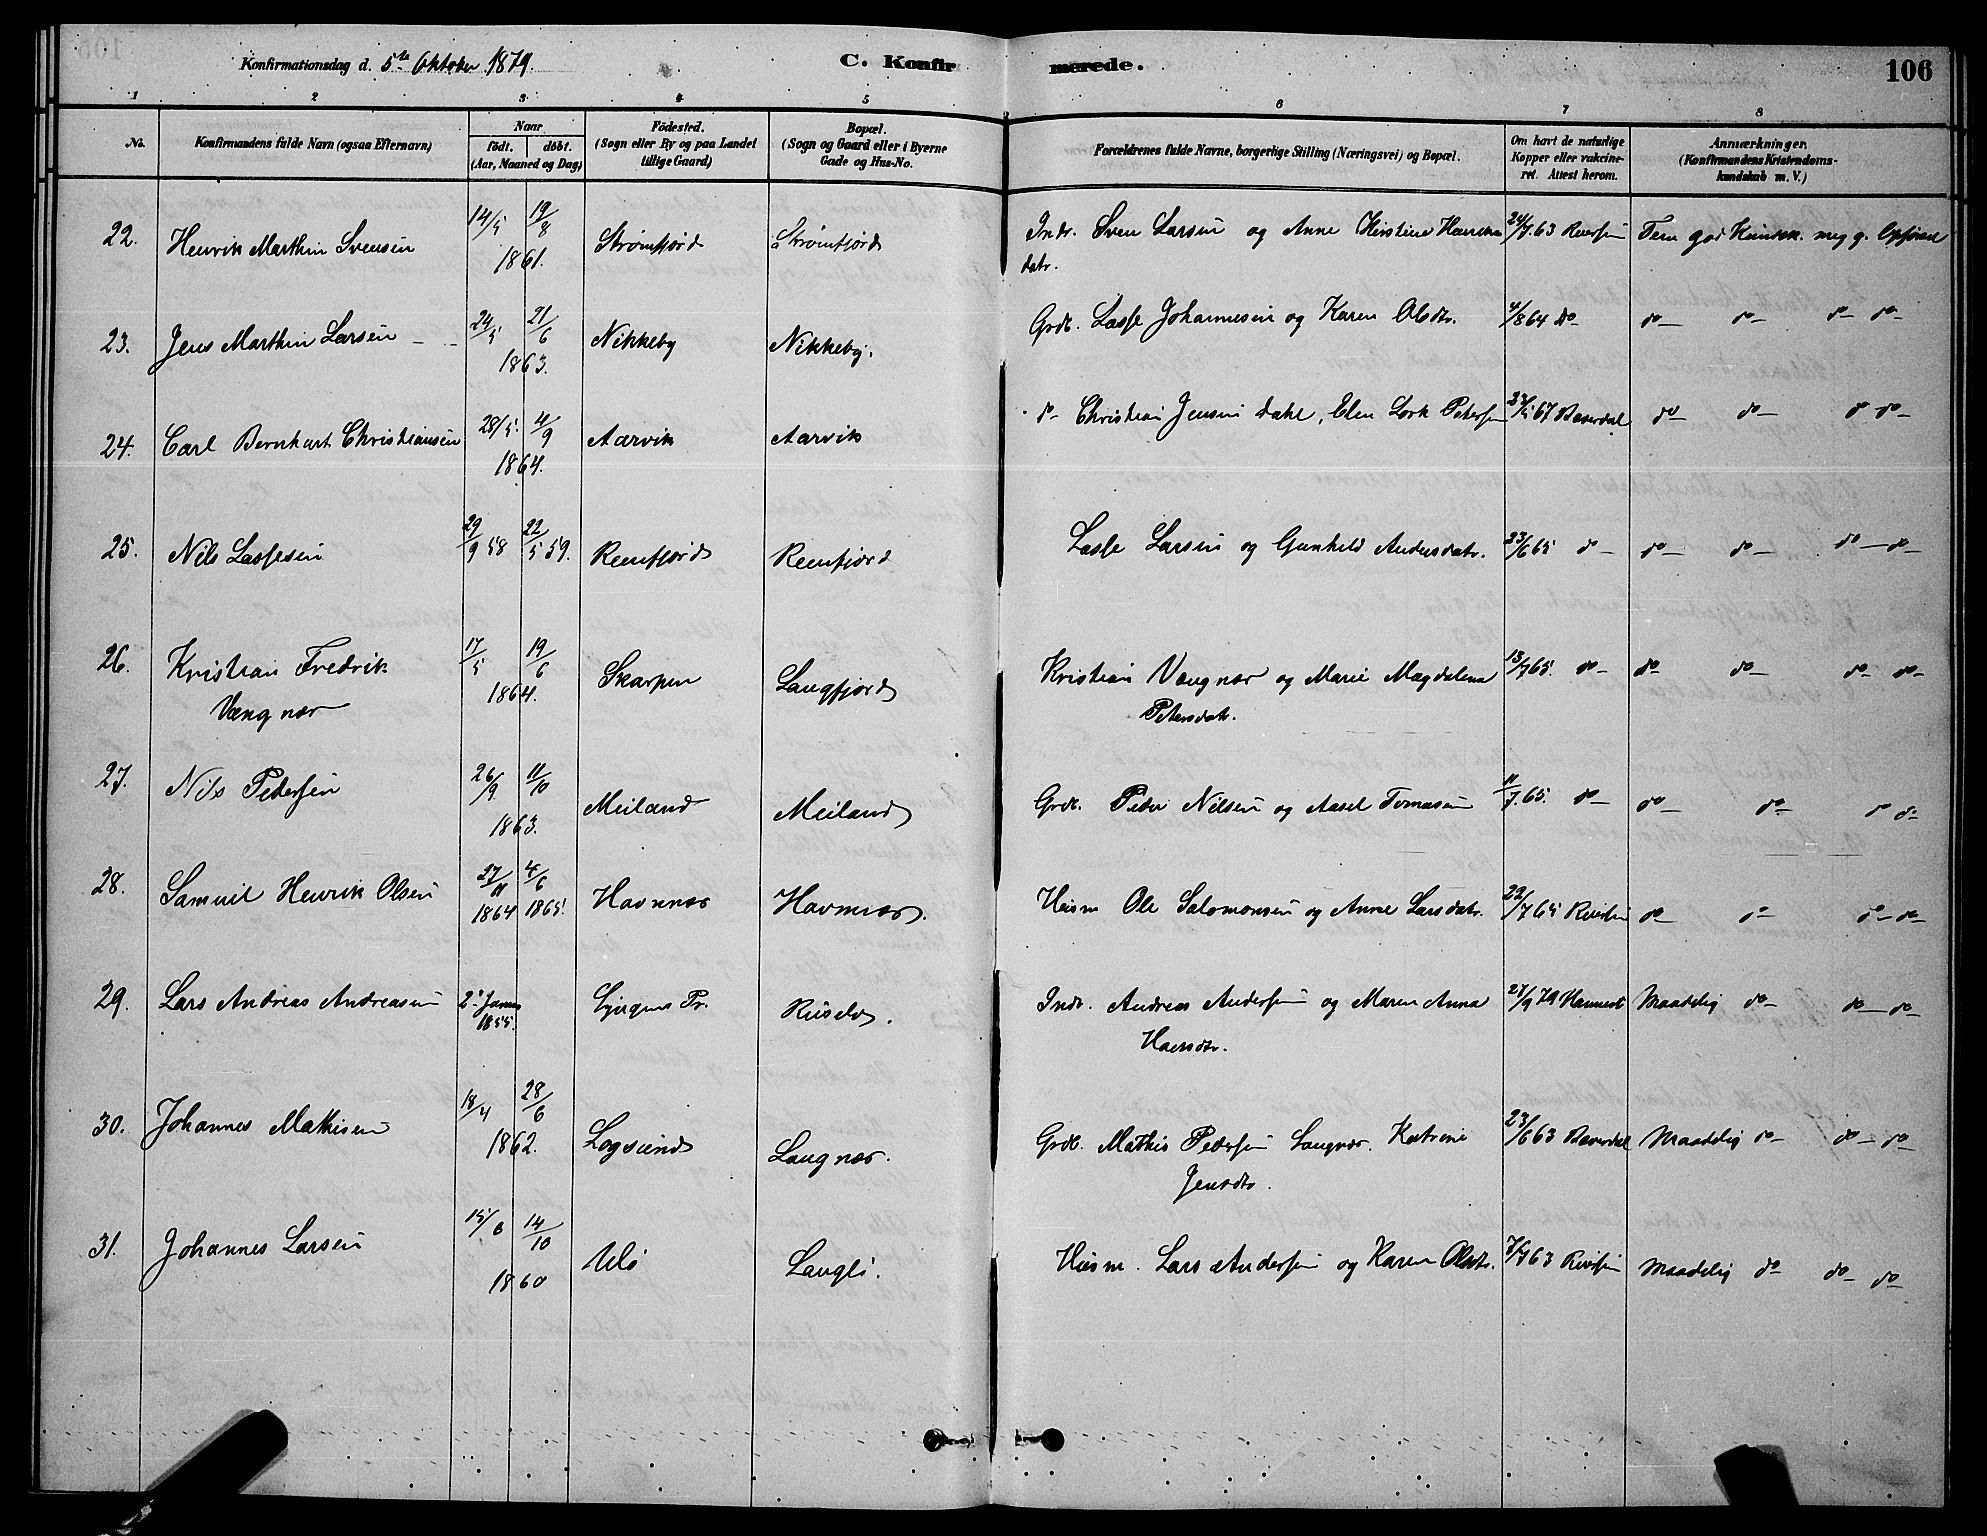 Konfirmationsdag d. 5te Oktober 1879.
C. Konfirmerede.
106
1 2 3 4 5 6 7 8
No.
Konfirmandens fulde Navn (ogsaa Efternavn)
Naar
födt. döbt.
(Aar, Maaned og Dag)
Födested.
(Sogn eller By og paa Landet
tillige Gaard)
Bopæl.
(Sogn og Gaard eller i Byerne
Gade og Hus-No.
Forældrenes fulde Navne, borgerlige Stilling (Næringsvei) og Bopæl.
Om havt de naturlige
Kopper eller vakcine-
ret. Attest herom.
Anmærkninger.
(Konfirmandens Kristendoms-
kundskab m. V.)
22. Henrik Marthin Svensen 14/5 19/8 1861. Strømfjord Strømfjord Indr. Sven Larsen og Anne Kirstine Henriks
datr. 24/7.63 god Kundsk. meg g. Opførsel
23. Jens Marthin Larsen 24/5 21/6 1863. Nikkeby Nikkeby. Grdb. Lasse Johannesen og Karen Olsdtr. 4/8 64 do do do do do
24. Carl Bernhart Christiansen 28/5. 4/9 1864. Aarvik Aarvik do Christian Jensen Dahl, Elen Petersen 23/5 67 Baverdal do do do do
25. Nils Lassesen 29/9 58 22/5 59. Reenfjord Reenfjord Lasse Larsen og Gunhild Andersdatr. 23/6 65 do do do do do
26. Kristian Fredrik
Vængnær 17/5 19/6 1864. Skarpen Langfjord Kristian Vængnær og Marie Magdalena
Petersdatr. 13/7 65. do do do do do
27. Nils Pedersen 26/9 11/10 1863. Meiland Meiland Grdb. Peder Nilsen og Aasel Tomasen 11/7.65. do do do do do
28. Samuel Henrik Olsen 27/11 1864 4/6 1865. Havnnæs Havnnæs. Husm Ole Salomonsen og Anne Larsdatr. 22/7 65 do do do do
29. Lars Andreas Andreasen 2. 1855. Lyngens Pr. Indr. Andreas Andersen og Maren Anna
Hansdtr. 27/9 79 Maadelig do do do
30. Johannes Mathisen 18/4 28/6 1862. Logsund Laugnæs. Grdb. Mathis Pedersen Laugnæs. Katrine
Jensdtr. 23/6 63 Baverdal Maadelig do do do
31. Johannes Larsen 15/8 14/10 1860 Ulø Lauglø. Husm. Lars Andersen og Karen Olsdtr. 7/7 63 Maadelig do do do